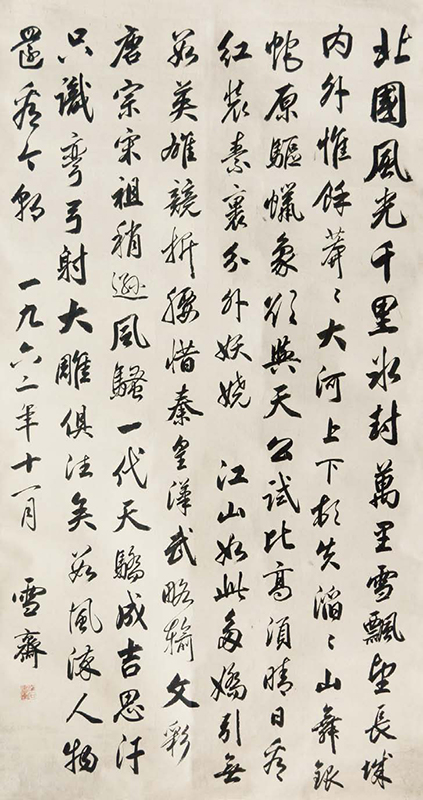 北國風光千里冰封萬里雪飄望長城
内外惟餘莽〻大河上下頓失滔〻山舞銀
蛇原驅蠟象欲與天公試比高須晴日看
紅裝素裹分外妖嬈 江山如此多嬌引無
數英雄競折腰惜秦皇漢武略輸文彩
唐宗宋祖稍遜風騷一代天驕成吉思汗
只識彎弓射大雕俱往矣數風流人物
還看今朝 一九六二年十一月 雪齋